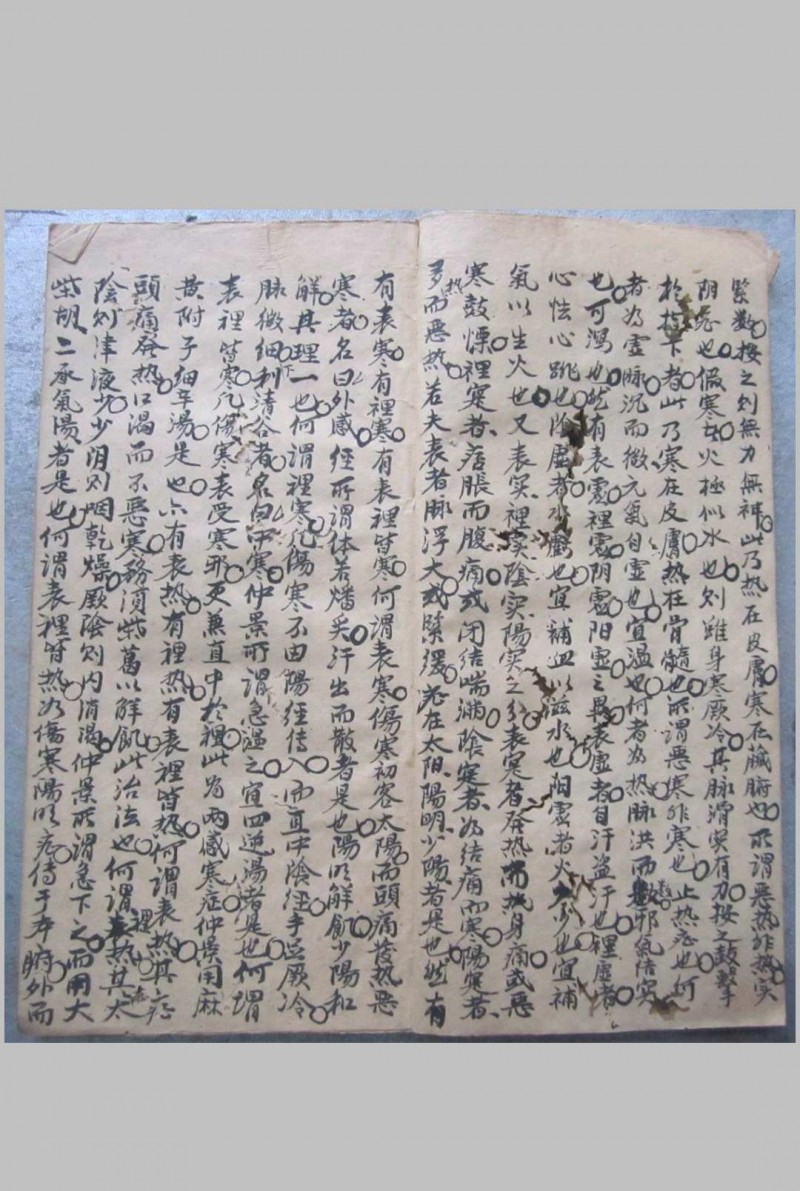 緊數按之則無力無神此乃熱在皮膚寒在臟腑也所謂惡熱非熱实
阴症也假寒者火極似水也則雖身寒厥冷其脉滑实有力按之鼓擊
於指下者此乃寒在皮膚热在骨髓也所謂惡寒非寒也止热症也何
者为虚脉沉而微元氣自虚也宜温也何者为热脉洪而数邪氣结实
也可瀉也然有表虚裡虚阴虚阳虚之異表虚者自汗盗汗也裡虚者
心怯心跳也陰虚者水虧也宜補血以滋水也阳虚者火少也宜補
氣以生火也又表实裡实陰实陽实之分表实者發热而热身痛或惡
寒鼓慄裡寔者痞脹而腹痛或闭结喘滿陰寔者为结痛而寒陽寔者
多热而惡热若夫表者脉浮大或緊缓症在太阳陽明少陽者是也然有
有表寒有裡寒有表裡皆寒何謂表寒傷寒初客太陽而頭痛發热惡
寒者名曰外感经所謂体若燔炭汗出而散者是也陽明解飢少陽和
解其理一也何謂裡寒凡傷寒不由陽经传入而直中陰经手足厥冷
脉微细下利清谷者名曰中寒仲景所謂急温之宜四逆湯者是也何謂
表裡皆寒凡傷寒表受寒邪更兼直中於裡此为两感寒症仲景用麻
黄附子细辛湯是也亦有表热有裡热有表裡皆热何謂表热其症
頭痛發热口渴而不惡寒務須柴葛以解飢此治法也何謂裡热其太
陰则津液少少阴则咽乾燥厥陰则内消渴仲景所謂急下之而用大
柴胡二承氣陽者是也何謂表裡皆热如傷寒陽明症传于本腑外而